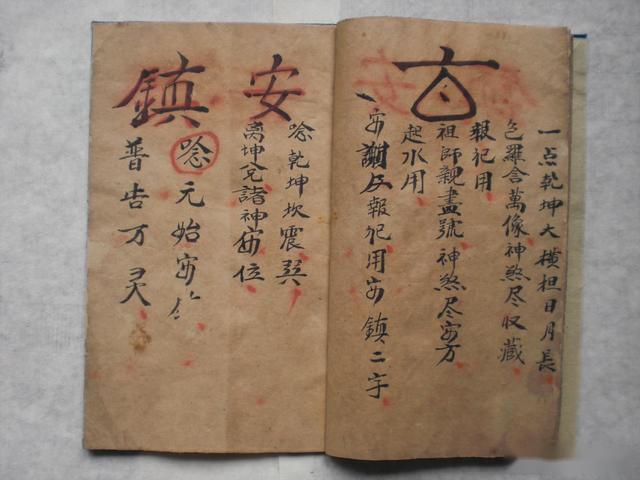 一点乾坤大横担日月長
包羅含萬像神煞尽収藏
報犯用
祖師親畫號神煞尽安方
起水用
一安謝反報犯用安鎮二字
安
唸乾坤坎震巽
离坤兑諸神安位
鎮
唸元始安
普告万灵